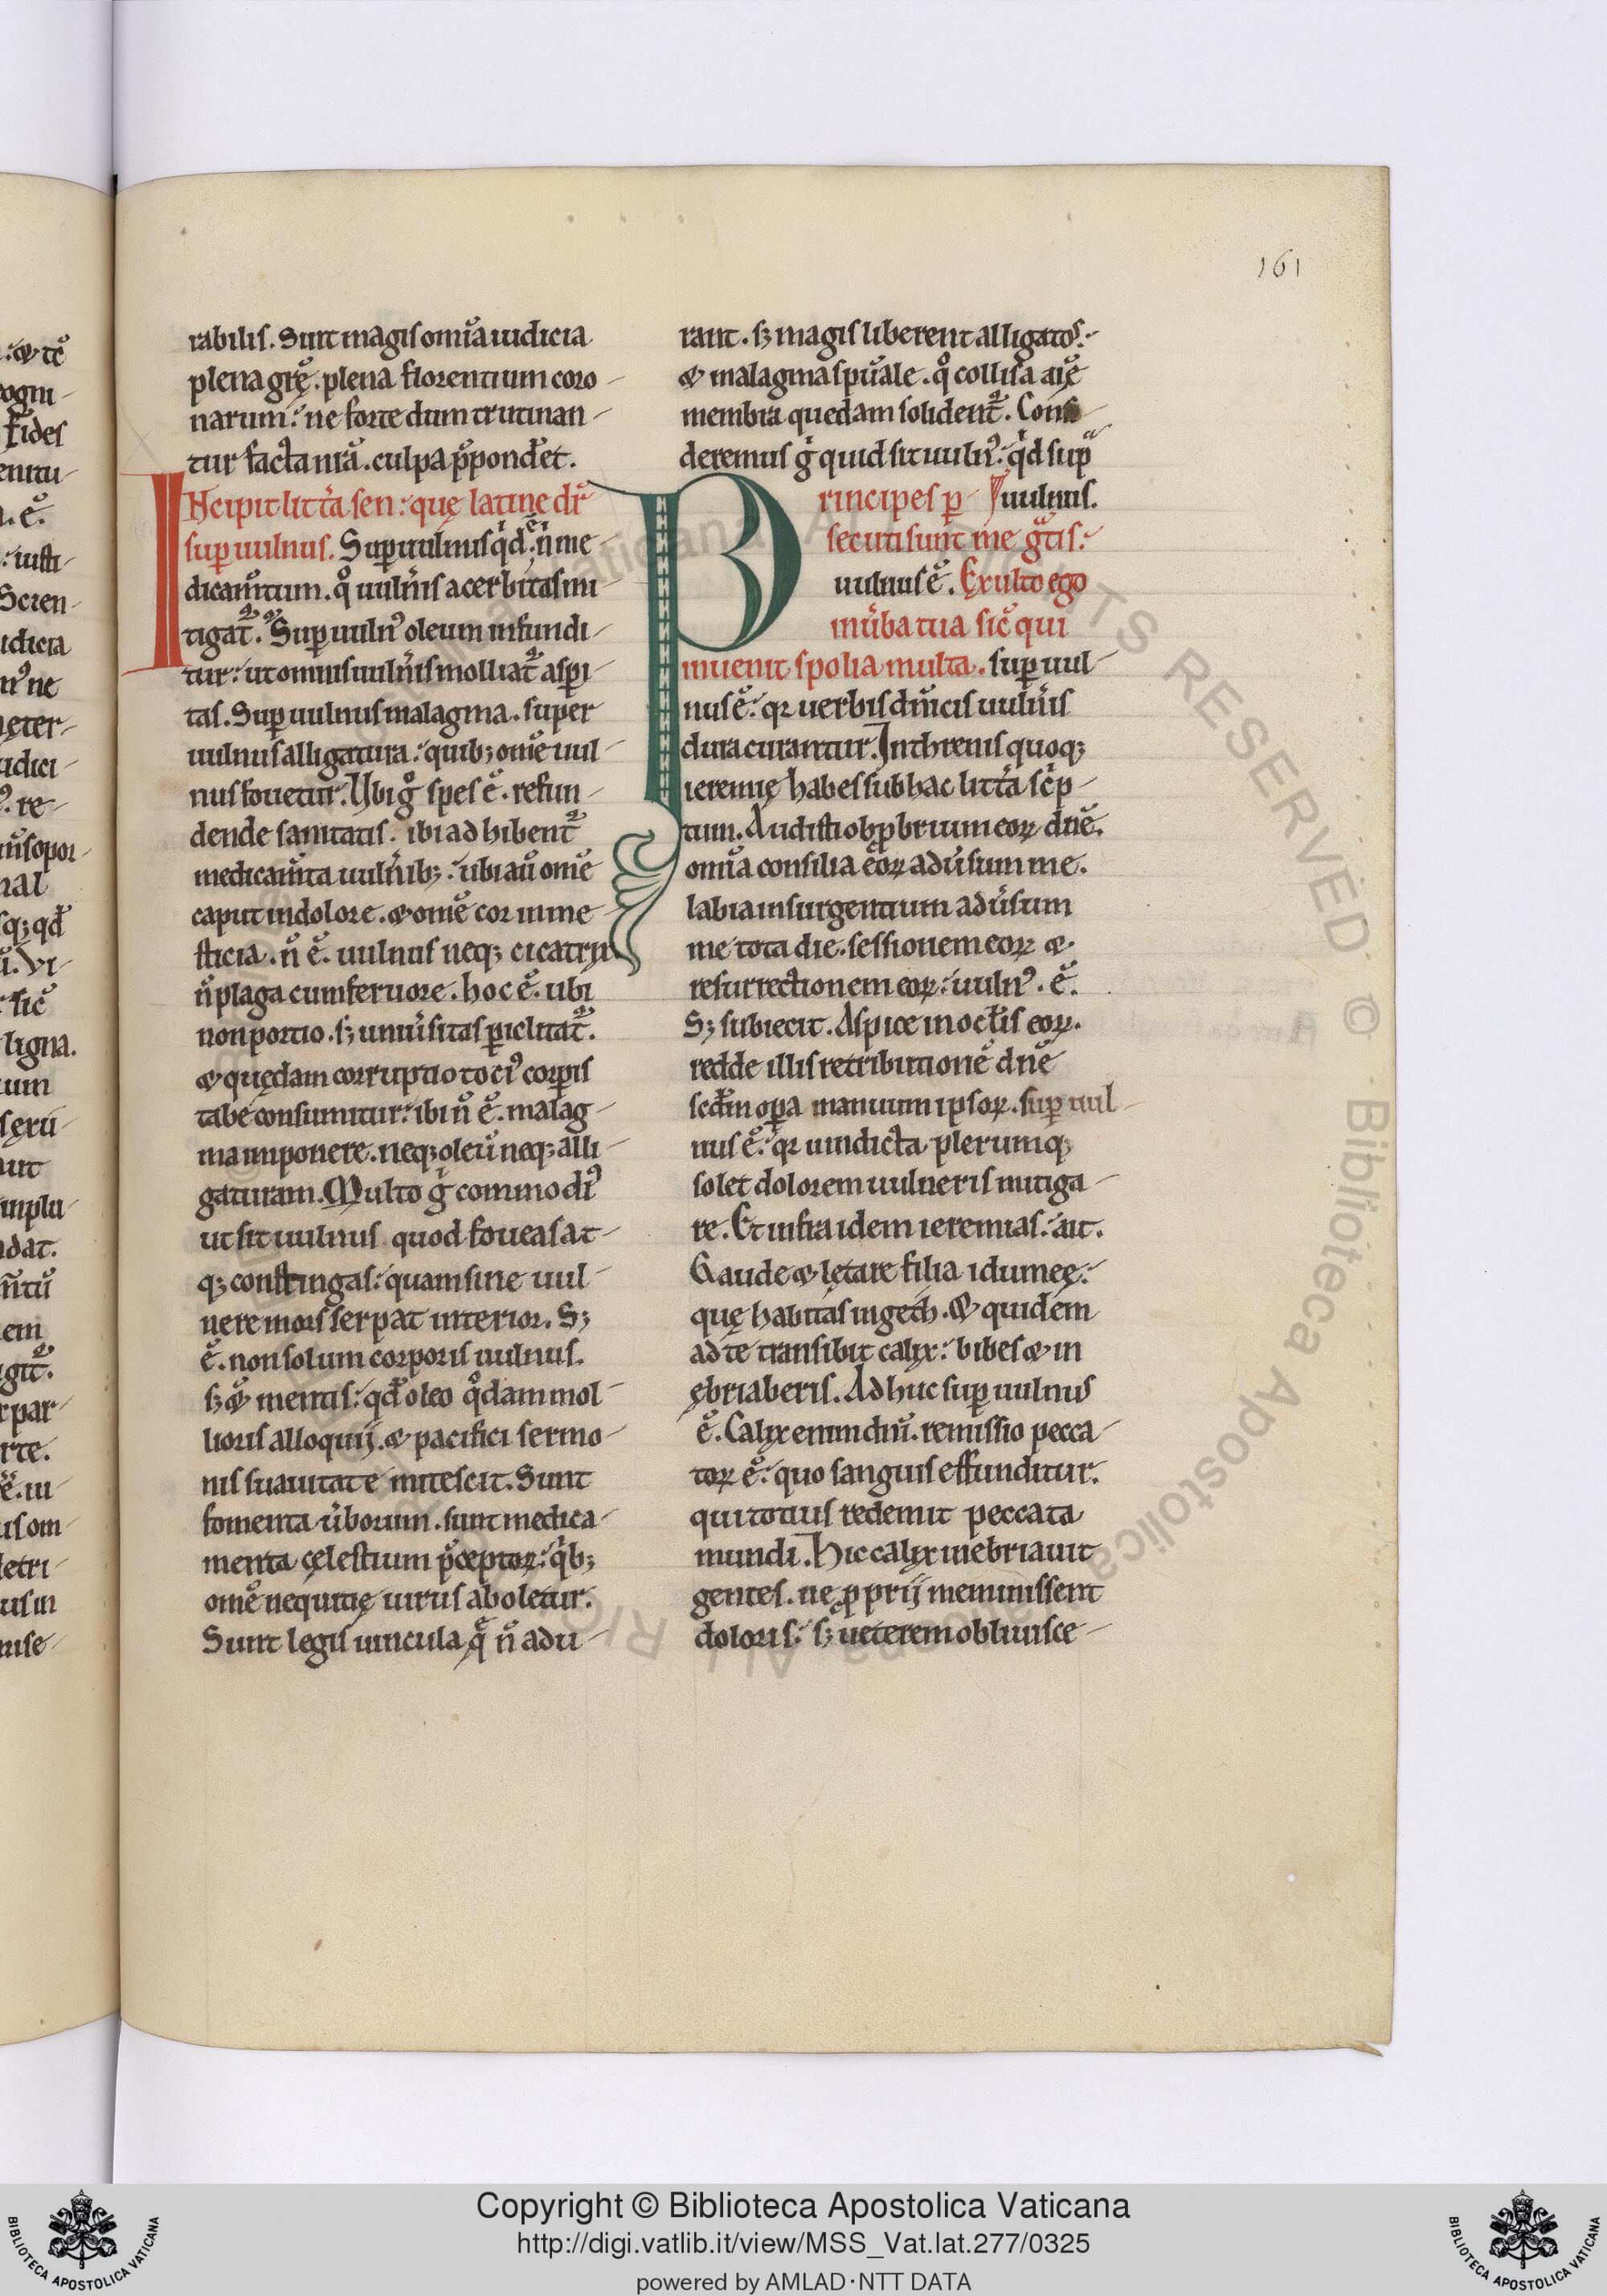 161
rabilis. Sunt magis om̅ia iudicia
plena gr̅ę. plena florentium coro-
narum: ne forte dum trutinan-
tur facta n̅ra. culpa p̅pondet.
Incipit litt̅a sen: quę latine dr̅
sup̲ uulnus. Sup̲ uulnus qͥd e̅: nͥ me-
dicam̅tum. qͦ uuln̅is acerbitas mi-
tigat̅. Sup̲ uulnꝰ oleum infundi-
tur: ut omnis uuln̅is molliat̅ asp̲i-
tas. Sup̲ uulnus malagma. super
uulnus alligatura: quibꝫ om̅e uul-
nus fouetur. Ubi gͦ spes e̅. refun-
dende sanitatis. ibi adhibent̅
medicam̅ta uuln̅ibꝫ: ubi au̅ om̅e
caput in dolore. & om̅e cor in me-
sticia. n̅ e̅. uulnus neqꝫ cicatrix
n̅ plaga cum feruore. hoc e̅. ubi
non portio. sꝫ uniu̅sitas p̲iclitat̅.
& quędam corruptio tociꝰ corp̲is
tabe consumitur: ibi n̅ e̅. malag-
ma imponere. neqꝫ oleu̅ neqꝫ alli-
gaturam. Multo gͥ commodiꝰ
ut sit uulnus quod foueas at-
qꝫ constringas: quam sine uul-
nere mors serpat interior. Sꝫ
e̅. non solum corporis uulnus.
sꝫ & mentis: qd̅ oleo qͦdam mol-
lioris alloquij. & pacifici sermo-
nis suauitate mitescit. Sunt
fomenta u̅borum. sunt medica-
menta cęlestium p̅ceptoꝝ: qͥbꝫ
om̅e nequitię uirus aboletur.
Sunt legis uincula q̅ n̅ adu-
rant. sꝫ magis liberent alligatos:
& malagma sp̅uale. qͦ collisa ai̅ę
membra quedam solident̅. Cons
deremus gͥ quid sit uulnꝰ: qͥd sup̲ᵃ
Principes p̲- uulnus.
secuti sunt me gᵃtis:
uulnus e̅. Exulto ego
in u̅ba tua sic̅ qui
inuenit spolia multa. sup̲ uul-
nus e̅: qꝛ uerbis dn̅icis uuln̅is
dura curantur. In threnis quoqꝫ
ieremię habes sub hac litt̅a scͥp-
tum. Audisti obꝓbrium eoꝝ dn̅e.
om̅ia consilia eoꝝ adu̅sum me.
labia insurgentium adu̅sum
me tota die. sessionem eoꝝ &
resurrectionem eoꝝ: uulnꝰ. e̅.
Sꝫ subiecit. Aspice in oclis eoꝝ.
redde illis retributione̅ dn̅e
scd̅m op̲a manuum ipsoꝝ. sup̲ uul-
nus e̅: qꝛ uindicta plerumqꝫ
solet dolorem uulneris mitiga-
re. Et infra idem ieremias: ait.
Gaude & lętare filia idumeę:
quę habitas in geth. & quidem
ad te transibit calix: bibes & in
ębriaberis. Adhuc sup̲ uulnus
e̅. Calix enim dn̅i. remissio pecca-
toꝝ e̅: quo sanguis effunditur.
qui totius redemit peccata
mundi. Hic calix inebriauit
gentes. ne ꝓprij meminissent
doloris: sꝫ ueterem obliuisce-
Copyright © Biblioteca Apostolica Vaticana
http://digi.vatlib.it/view/MSS_Vat.lat.277/0325
powered by AMLAD·NTT DATA
BIBLIOTECA APOSTOLICA VATICANA
BIBLIOTECA APOSTOLICA VATICANA